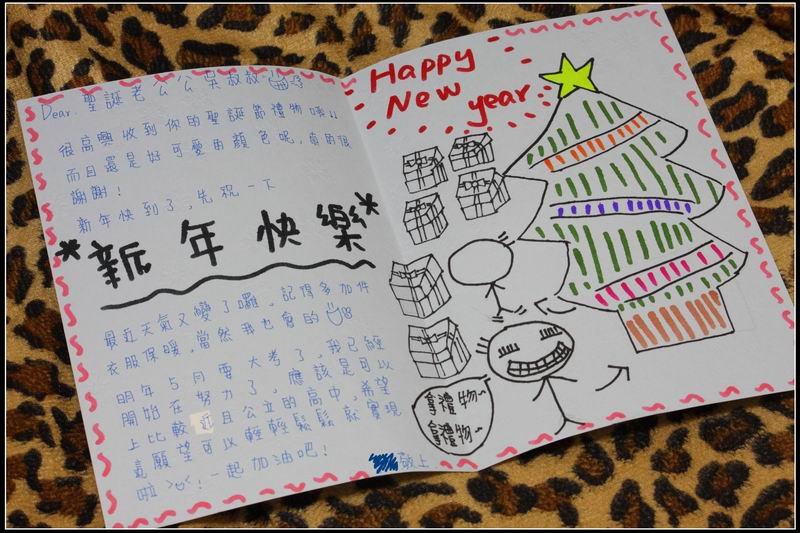 Dear. 聖誕老公公吳叔叔
很高興收到你的聖誕節禮物唷
而且還是好可愛的顏色呢,真的很
謝謝!
新年快到了,先祝一下
*新年快樂*
最近天氣又變了囉,記得多加件
衣服保暖,當然我也會的
明年5月要大考了,我已經
開始在努力了,應該是可以
上比較近且公立的高中,希望
這願望可以輕輕鬆鬆就實現
啦>"<!一起加油吧!
敬上
Happy
New year
拿禮物~
拿禮物~